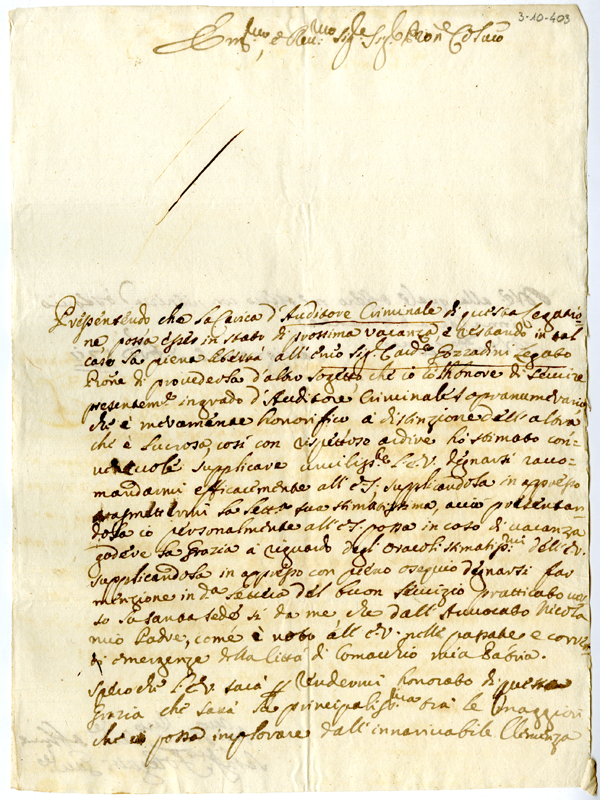 3-10-403
Em.mo, e Rev.mo Sig.re Sig.re Pron.e Col.mo
Presentendo che la Carica d'Auditore Criminale di questa Legatio-
ne possa essere in stato di prossima vacanza e restando in tal
caso la piena libertà all'Em.o Sig.r Card.e Gozzadini Legato
Prone di provedersi d'altro sogetto che io ò l'honore di servire
presentem.e in grado d'Auditore Criminale sopranumerario
che è meramente honorifico à distinzione dell'altra
che è lucrosa, così con rispettoso ardire hò stimato con-
venevole supplicare l'E.V. degnarsi racco-
mandarmi efficacemente all'E.S. supplicandola in appresso
trasmettermi la lett.a sua stimatissima, acciò presentan-
dola io personalmente all'E.S. possa in caso di vacanza
godere la grazia à riguardo degl'oracoli stimatiss.mi dell'E.V.
supplicandola in appresso con pieno osequio degnarsi far
menzione in d.a lettera del buon servizio pratticato ver-
so la Santa Sede sì da me che dall'Avvocato Nicola
mio Padre, come è noto all'E.V. nelle passate e
emergenze della Città di Comacchio mia Patria.
Spero che l'E.V. sarà p rendermi honorato di questa
grazia che sarà la principaliss.ma trà le maggiori
che possa implorare dall'innarivabile Clemenza